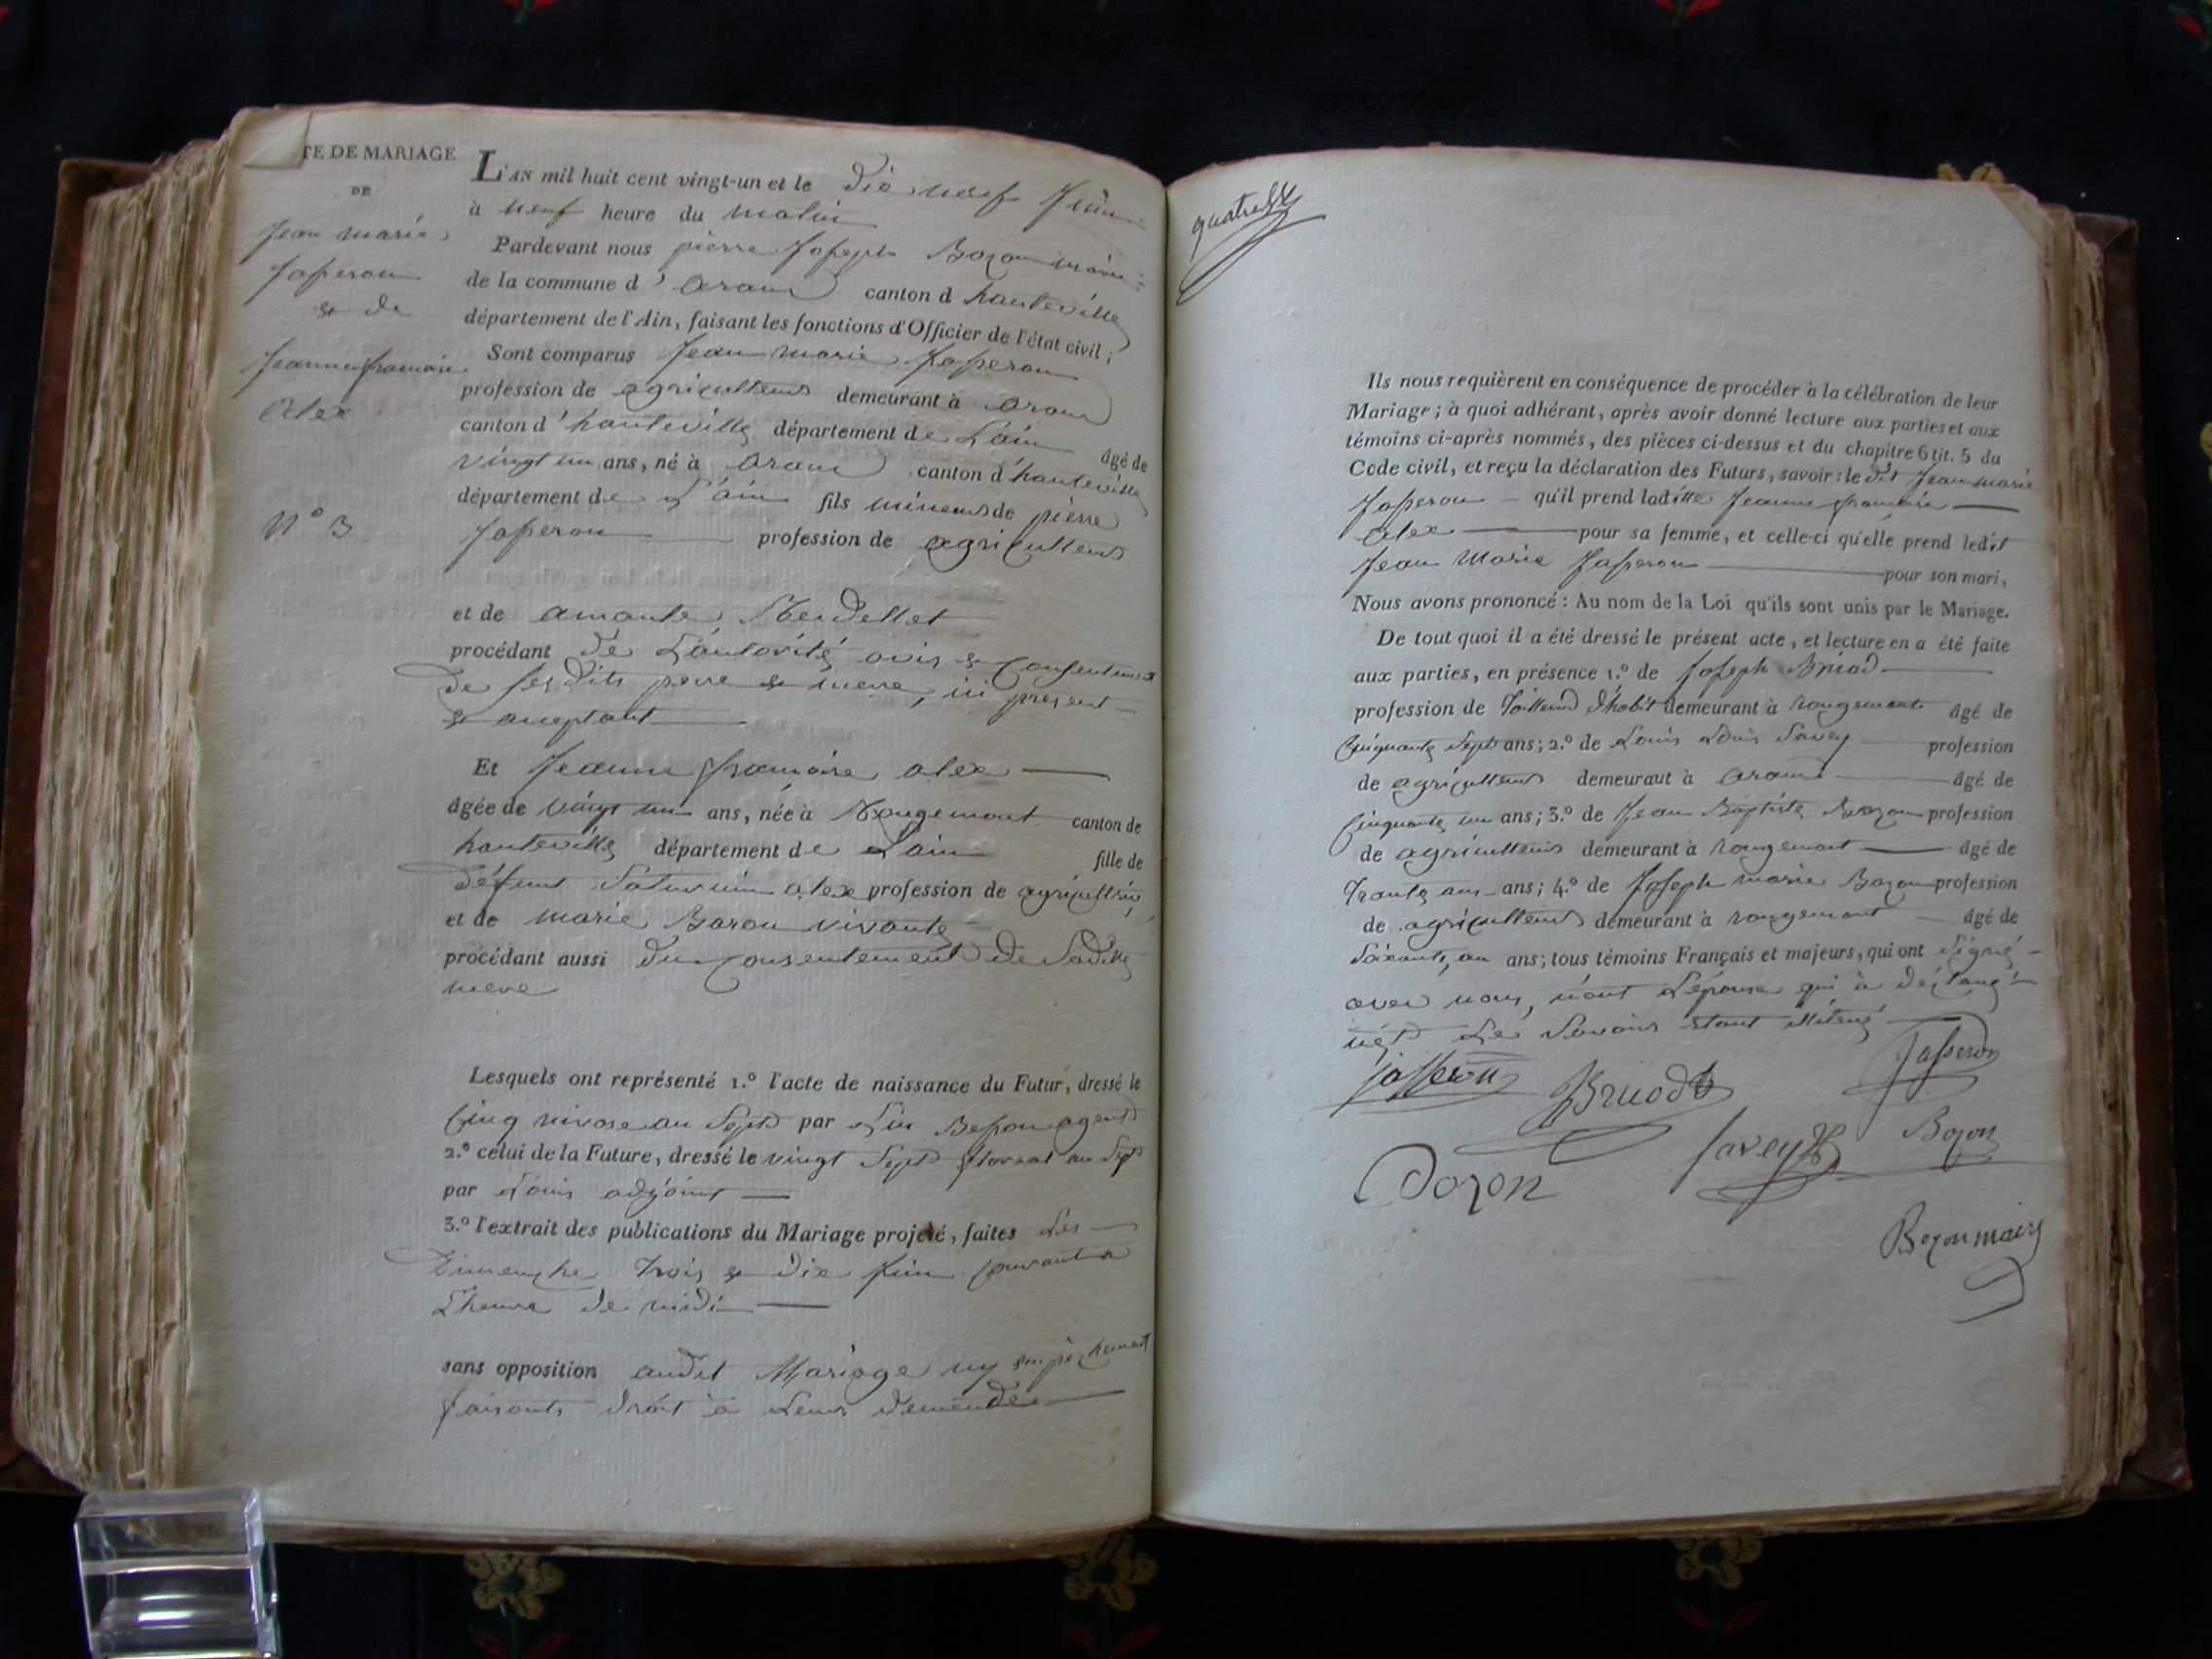 TE DE MARIAGE
DE
Jean marie
Jasseron
et de
Jeanne framoise
Alex
N° 3
L'AN mil huit cent vingt-un et le dix neuf Juin
à neuf heure du matin
Pardevant nous pierre Joseph Bozon maire
de la commune d'aranc canton d hauteville
département de l'Ain, faisant les fonctions d'Officier de l'état civil;
Sont comparus Jean marie Jasseron
profession de agriculteur demeurant à aranc
canton d'hauteville département de L'ain âgé de
vingt un ans, né à aranc canton d'hauteville
département de L'ain fils mineur de pierre
Jasseron profession de agriculteur
et de
procédant de L'autorité avis et consentement
de ses dits pere et mere, ici present
et acceptant
Et Jeanne framoise alex
âgée de vingt un ans, née à Rougemont canton de
hauteville département de Lain fille de
défunt Saturnin alex profession de agriculteur
et de marie Baron vivante
procédant aussi du consentement de Saditte
mere
Lesquels ont représenté 1.º l'acte de naissance du Futur, dressé le
Cinq nivose an Sept par agent
2.º celui de la Future, dressé le vingt Sept floreal an Sept
par Louis adjoint
3.º l'extrait des publications du Mariage projeté, faites Les
Dimenche trois et dix Juin courant a
L'heure de midi
sans opposition audit Mariage ny empechement
faisants droit a Leur demende
quatre
Ils nous requièrent en conséquence de procéder à la célébration de leur
Mariage; à quoi adhérant, après avoir donné lecture aux parties et aux
témoins ci-après nommés, des pièces ci-dessus et du chapitre 6 tit. 5 du
Code civil, et reçu la déclaration des Futurs, savoir: le dit Jean marie
Jasseron qu'il prend laditte Jeanne framoise
alex pour sa femme, et celle-ci qu'elle prend ledit
Jean Marie Jasseron pour son mari,
Nous avons prononcé: Au nom de la Loi qu'ils sont unis par le Mariage.
De tout quoi il a été dressé le présent acte, et lecture en a été faite
aux parties, en présence 1.º de Joseph Bruod
profession de Tailleur d'habit demeurant à rougemont âgé de
Cinquante Sept ans; 2.º de Louis Louis Savey profession
de agriculteur demeurant à aranc âgé de
Cinquante un ans; 3.º de Jean Baptiste Bozon profession
de agriculteur demeurant à rougemont âgé de
Trante ans; 4.º de Joseph marie Bozon profession
de agriculteur demeurant à rougemont âgé de
Soixante, ans; tous témoins Français et majeurs, qui ont signé
avec nous, L'épouse qui à
Le Savoir etant
Jasseron
Bruod
Jasseron
Bozon
Savey
Bozon
Bozon maire